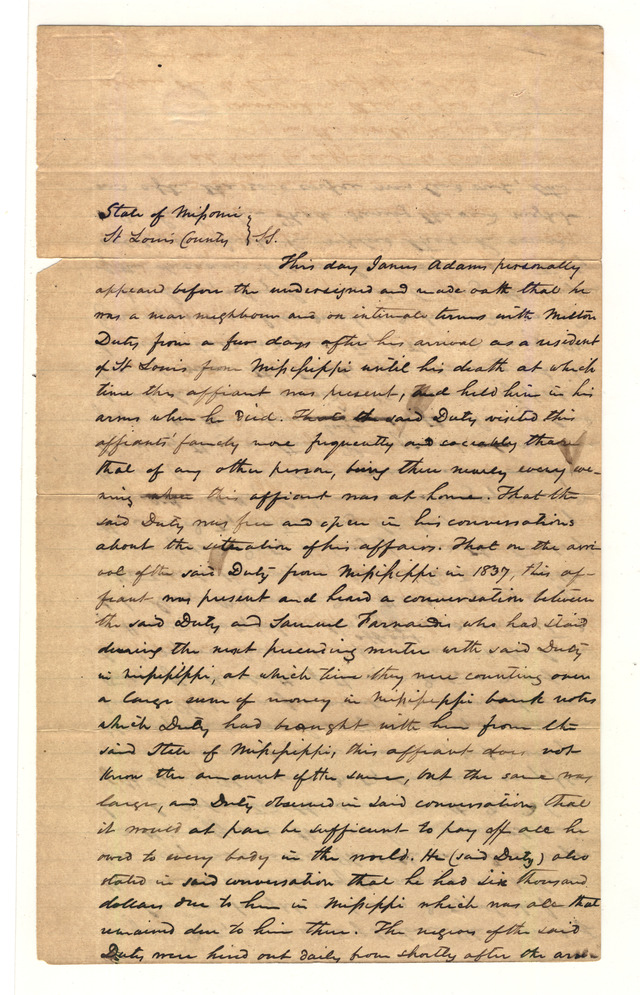 State of Missouri }
St Louis County } SS.
This day James Adams personally
appeared before the undersigned and made oath that he
was a near neighbour and on intimate terms with Milton
Duty from a few days after his arrival as a resident
of St Louis from Mississippi until his death at which
time this affiant was present, and held him in his
arms when he died. That the said Duty visited this
affiants' family more frequently and sociably than
that of any other person, being there nearly every eve-
ning when this affiant was at home. That the
said Duty was free and open in his conversations
about the situation of his affairs. That on the arri
val of the said Duty from Mississippi in 1837, this af-
fiant was present and heard a conversation between
the said Duty and Samuel Farnandis who had staid
during the next preceeding winter with said Duty
in Mississippi, at which time they were counting over
a large sum of money in Mississippi bank notes
which Duty had brought with him from the
said State of Mississippi, this affiant does not
know the amount of the same, but the same was
large, and Duty observed in said conversation that
it would at par be sufficient to pay off all he
owed to every body in the world. He (said Duty) also
stated in said conversation that he had six thousand
dollars due to him in Missippi which was all that
remained due to him there. The negroes of the said
Duty were hired out daily from shortly after the arri-